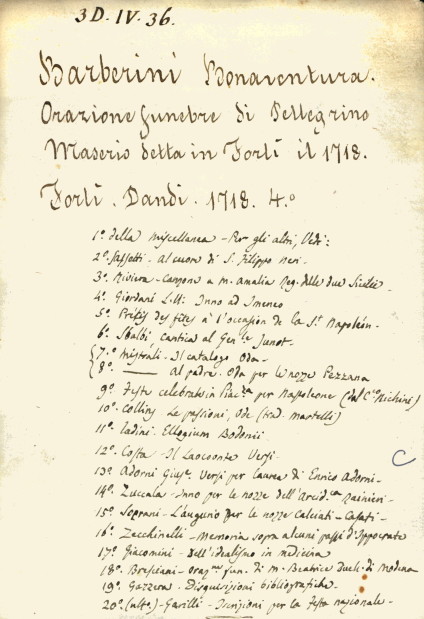 3D.IV.36.
Barberini Bonaventura.
Orazione funebre di Pellegrino
Maserio detta in Forlì il 1718.
Forlì. Dandi. 1718. 4.º
1º. della miscellanea - Per gli altri, Vedi:
2º. Sassetti. al cuore di S. Filippo neri.
3º. Riviera - Canzone a m. amalia Reg. delle due Sicilie
4º. Giordani L. Inno ad Imeneo
5º. Précis des fêtes à l'occasion de la St. Napoléon.
6º. Sbalbi cantica al Genle. Junot -
7º. mistrali - Il catalogo Oda -
8º. ——— al padre. Oda per le nozze Pezzana
9º. Feste celebrate in per Napoleone (dal
10º. Collins Le passioni, Ode (trad. Martelli)
11º. Tadini. Ellogium Bodonii
12º. Costa - Il Laocoonte Versi -
13º. Adorni Giuse. Versi per laurea di Enrico Adorni -
14º. Zuccala - Inno per le nozze dell'Arcid. Rainieri -
15º. Soprani - L'augurio per le nozze Calciati - Casati -
16º. Zecchinelli - Memoria sopra alcuni passi d'Ippocrate
17º. Giacomini - Dell'idealismo in medicina
18º. Bresciani - Orazne. fun. di m. Beatrice Duch. di Modena
19º. Gazzera - Disquisizioni bibliografiche -
20º. (ulto.) - Gavilli - Iscrizioni per la festa nazionale -
C